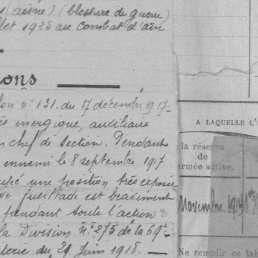 (aisne) (blessure de guerre)
let 1925 au combat d'ain
ons
n° 131. du 17 décembre 1917-
énergique, auxiliaire
chef de section. Pendant
ennemi le 8 septembre 1917
une position très exposée
fusillade est bravement
pendant toute l'action
la Division n° 275 de la 69e
du 29 Juin 1918.-
A LAQUELLE L'
la réserve
de
armée active.
Novembre 19
Ne remplir ce tab